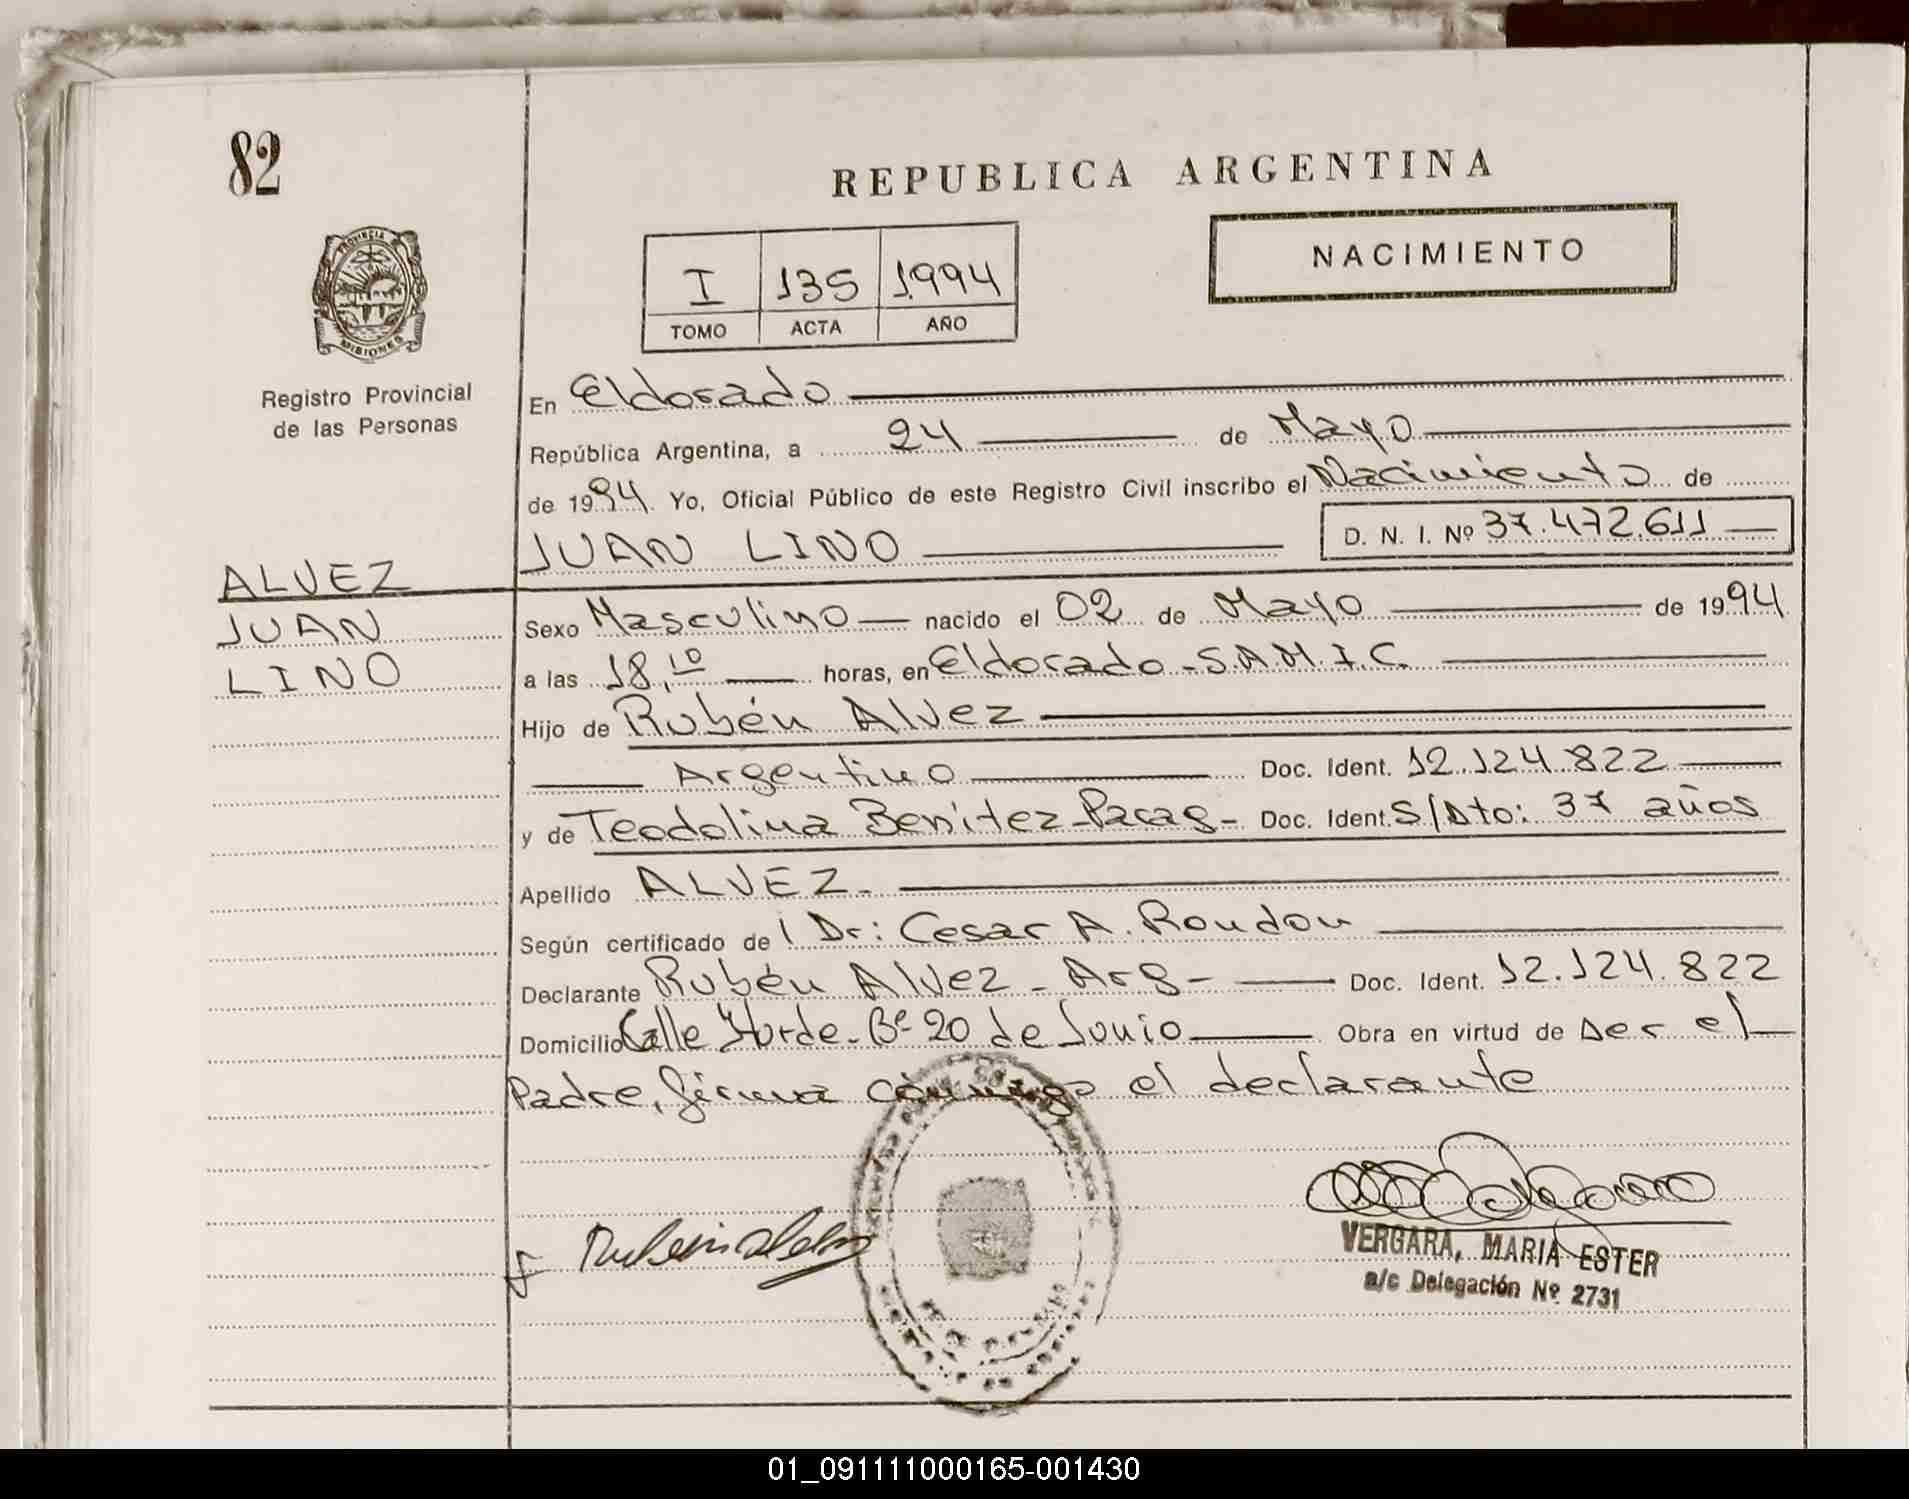 82
REPUBLICA ARGENTINA
NACIMIENTO
I 135 1994
TOMO ACTA AÑO
PROVINCIA
MISIONES
Registro Provincial
de las Personas
En Eldorado
República Argentina, a 24 de Mayo
de 1994. Yo, Oficial Público de este Registro Civil inscribo el Nacimiento de
JUAN LINO D. N. I. Nº 37.472.611
ALVEZ
JUAN
LINO
Sexo Masculino nacido el 02 de Mayo de 1994
a las 18,10 horas, en Eldorado - S.A.M.I.C.
Hijo de Rubén Alvez
Argentino Doc. Ident. 12.124.822
y de Teodolina Benítez - Parag - Doc. Ident. S/Dto: 37 años
Apellido ALVEZ -
Según certificado de Dr: Cesar A. Roudou
Declarante Rubén Alvez - Arg - Doc. Ident. 12.124.822
Domicilio Calle - Bº 20 de Junio Obra en virtud de ser el
Padre, firma conmigo el declarante
VERGARA, MARIA ESTER
a/c Delegación Nº 2731
01_091111000165-001430